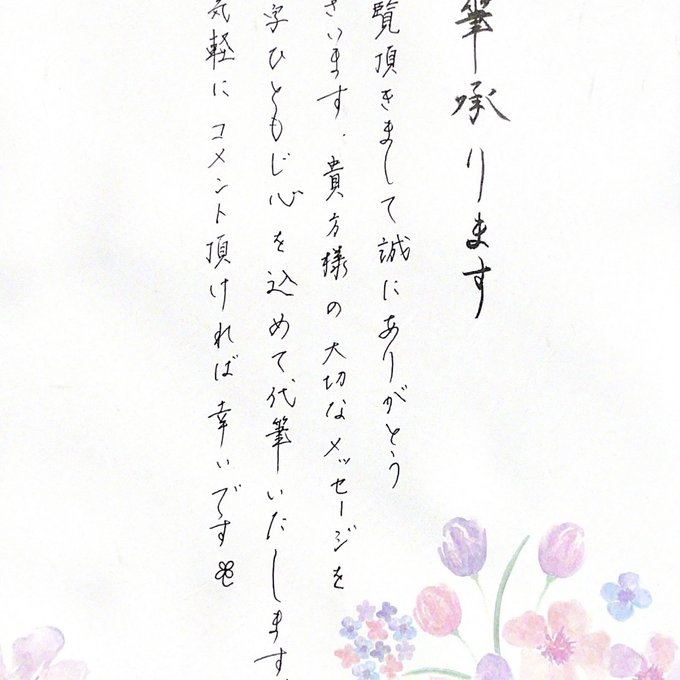 筆承ります
覧頂きまして誠にありがとう
ざいます.貴方様の大切なメッセージを
字ひともじ心を込めて代筆いたします.
気軽にコメント頂ければ幸いです